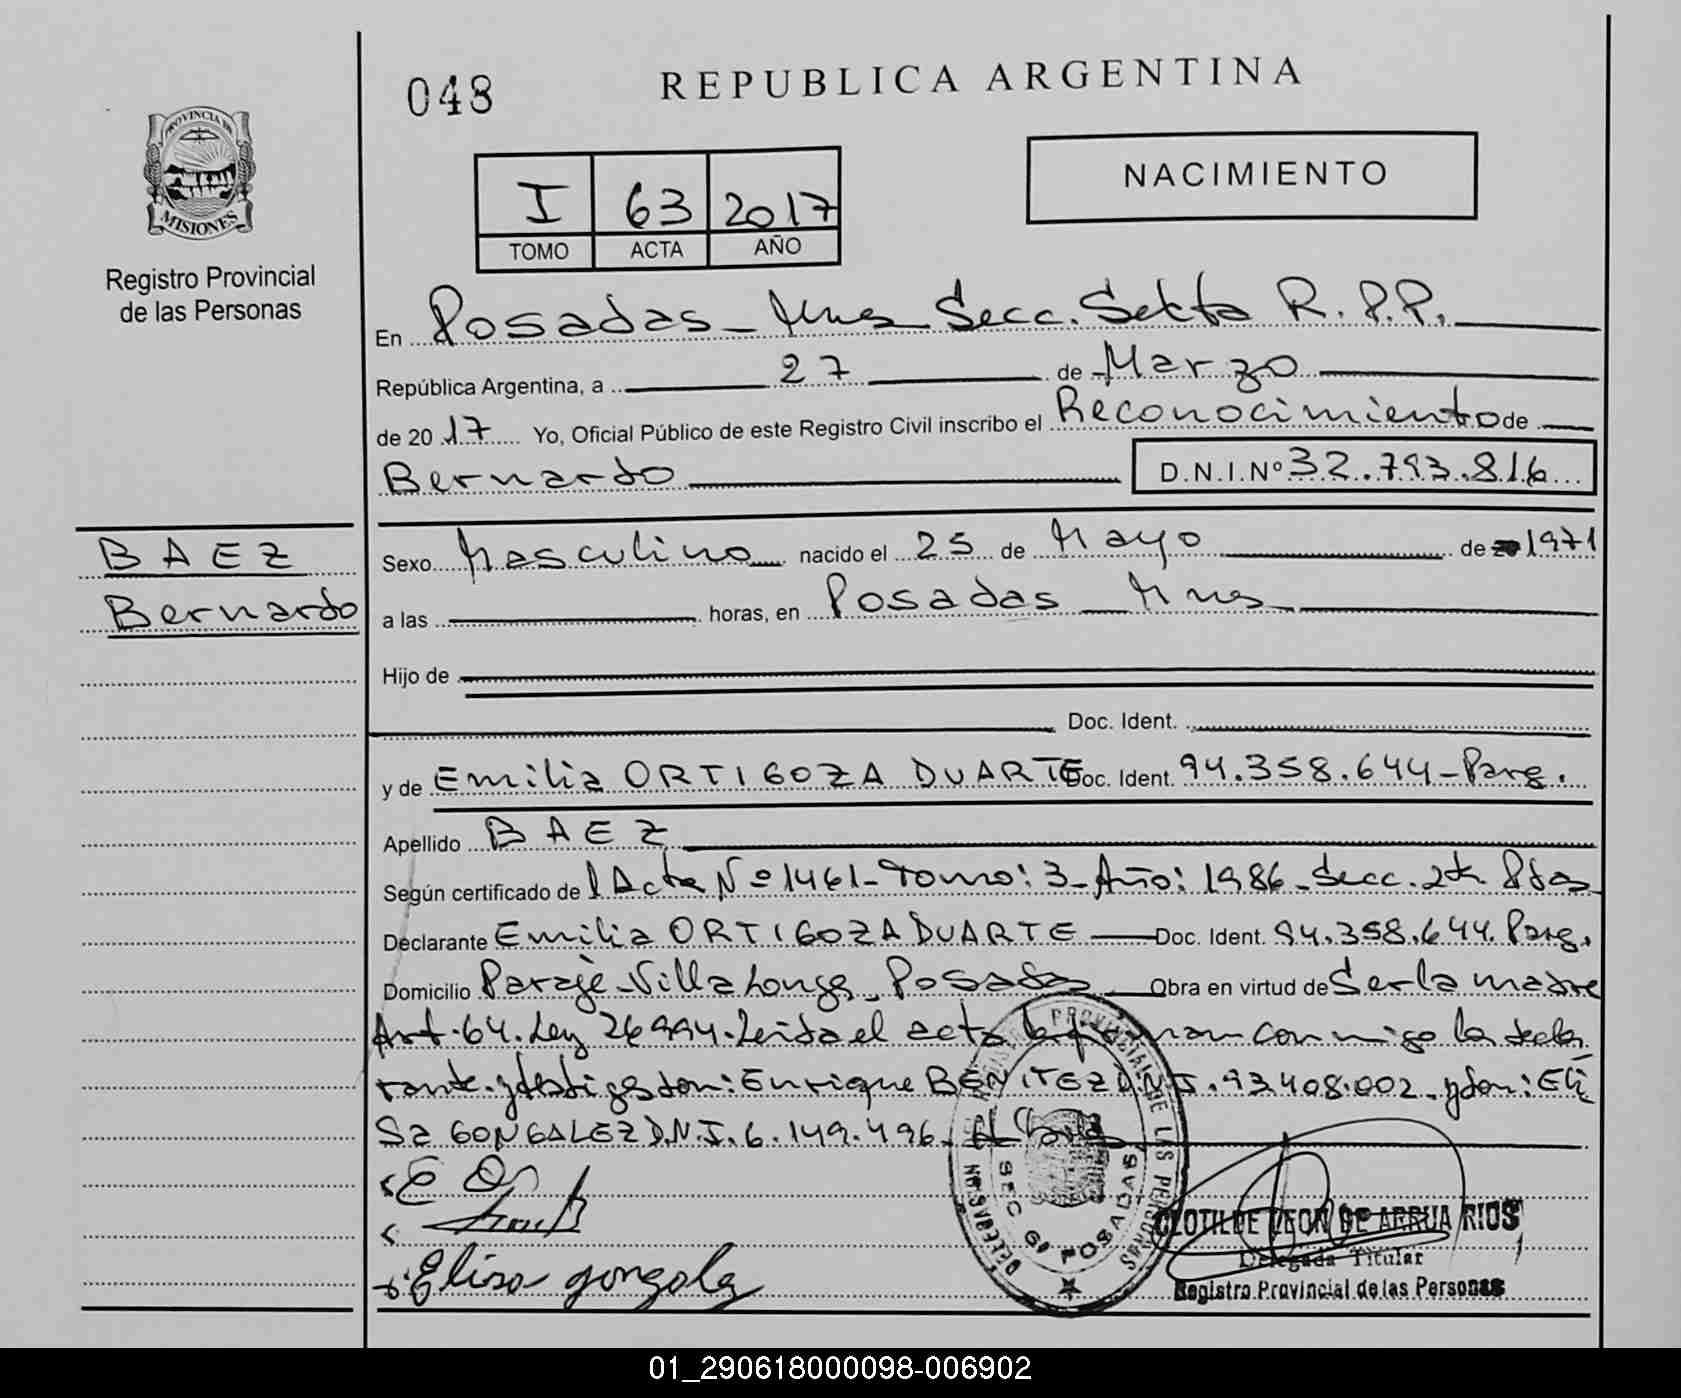 048
REPUBLICA ARGENTINA
PROVINCIA DE
MISIONES
Registro Provincial
de las Personas
I 63 2017
TOMO ACTA AÑO
NACIMIENTO
En Posadas - Mnes Secc. Sexta R.P.P.
República Argentina, a 27 de Marzo
de 2017 Yo, Oficial Público de este Registro Civil inscribo el Reconocimiento de
Bernardo D.N.I.Nº 32.793.816
BAEZ
Bernardo
Sexo Masculino nacido el 25 de Mayo de 1971
a las horas, en Posadas Mnes
Hijo de
Doc. Ident.
y de Emilia ORTIGOZA DUARTE Doc. Ident. 94.358.644 - Parg.
Apellido BAEZ
Según certificado de Acta Nº 1461 - Tomo: 3 - Año: 1986 - Secc. 2ª Pdas
Declarante Emilia ORTIGOZA DUARTE Doc. Ident. 94.358.644. Parg.
Domicilio Paraje Villalonga - Posadas Obra en virtud de Ser la madre
Art. 64. Ley 26994. Leida el acta la firman conmigo la decla
rante y testigos don: Enrique BENITEZ D.N.I. 93.408.002 - y don: Eli
sa GONZALEZ D.N.I. 6.149.496.
Elisa gonzalez
DELEGACION REGISTRO PROVINCIAL DE LAS PERSONAS
SEC 6ª POSADAS
CLOTILDE LEON DE ARRUA RIOS
Delegada Titular
Registro Provincial de las Personas
01_290618000098-006902